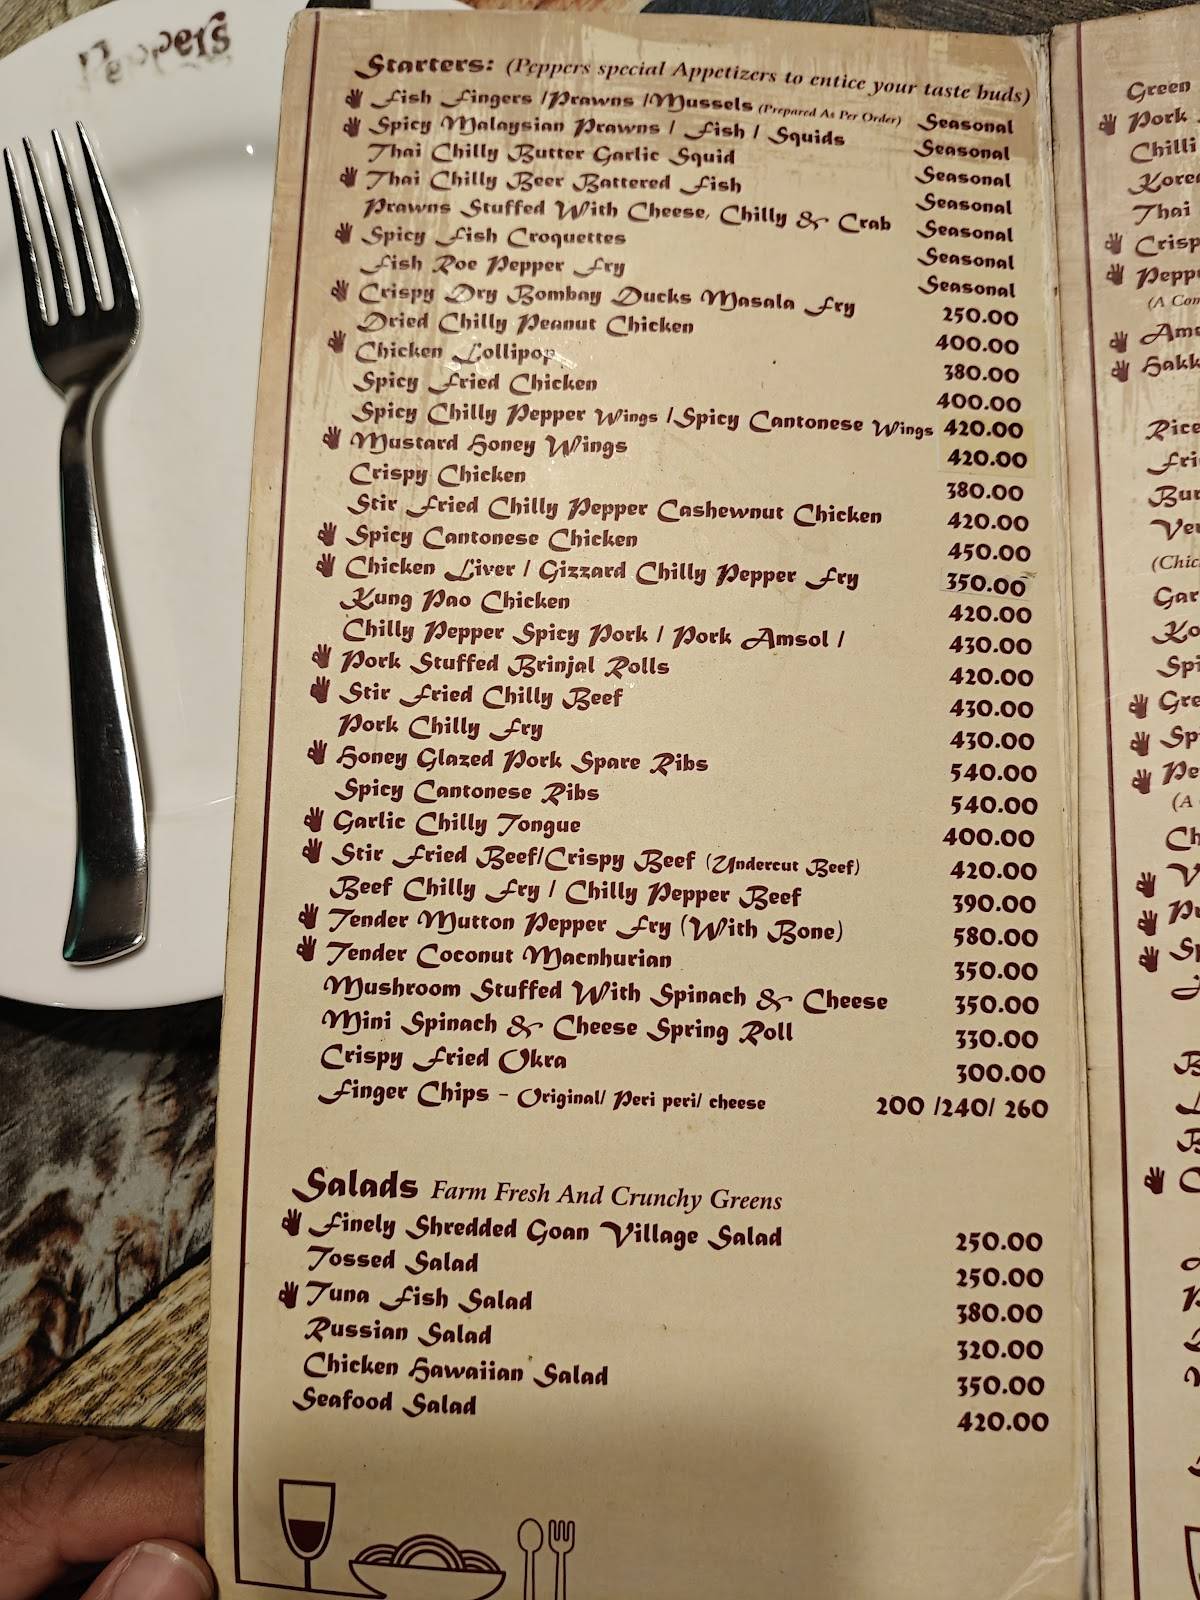 Peppers
Starters: (Peppers special Appetizers to entice your taste buds)
Fish Fingers /Prawns /Mussels (Prepared As Per Order) Seasonal
Spicy Malaysian Prawns / Fish / Squids Seasonal
Thai Chilly Butter Garlic Squid Seasonal
Thai Chilly Beer Battered Fish Seasonal
Prawns Stuffed With Cheese, Chilly & Crab Seasonal
Spicy Fish Croquettes Seasonal
Fish Roe Pepper Fry Seasonal
Crispy Dry Bombay Ducks Masala Fry 250.00
Dried Chilly Peanut Chicken 400.00
Chicken Lollipop 380.00
Spicy Fried Chicken 400.00
Spicy Chilly Pepper Wings /Spicy Cantonese Wings 420.00
Mustard Honey Wings 420.00
Crispy Chicken 380.00
Stir Fried Chilly Pepper Cashewnut Chicken 420.00
Spicy Cantonese Chicken 450.00
Chicken Liver / Gizzard Chilly Pepper Fry 350.00
Kung Pao Chicken 420.00
Chilly Pepper Spicy Pork / Pork Amsol / 430.00
Pork Stuffed Brinjal Rolls 420.00
Stir Fried Chilly Beef 430.00
Pork Chilly Fry 430.00
Honey Glazed Pork Spare Ribs 540.00
Spicy Cantonese Ribs 540.00
Garlic Chilly Tongue 400.00
Stir Fried Beef/Crispy Beef (Undercut Beef) 420.00
Beef Chilly Fry / Chilly Pepper Beef 390.00
Tender Mutton Pepper Fry (With Bone) 580.00
Tender Coconut Macnhurian 350.00
Mushroom Stuffed With Spinach & Cheese 350.00
Mini Spinach & Cheese Spring Roll 330.00
Crispy Fried Okra 300.00
Finger Chips - Original/ Peri peri/ cheese 200 /240/ 260
Salads Farm Fresh And Crunchy Greens
Finely Shredded Goan Village Salad 250.00
Tossed Salad 250.00
Tuna Fish Salad 380.00
Russian Salad 320.00
Chicken Hawaiian Salad 350.00
Seafood Salad 420.00
Green
Pork
Chilli
Thai
Rice